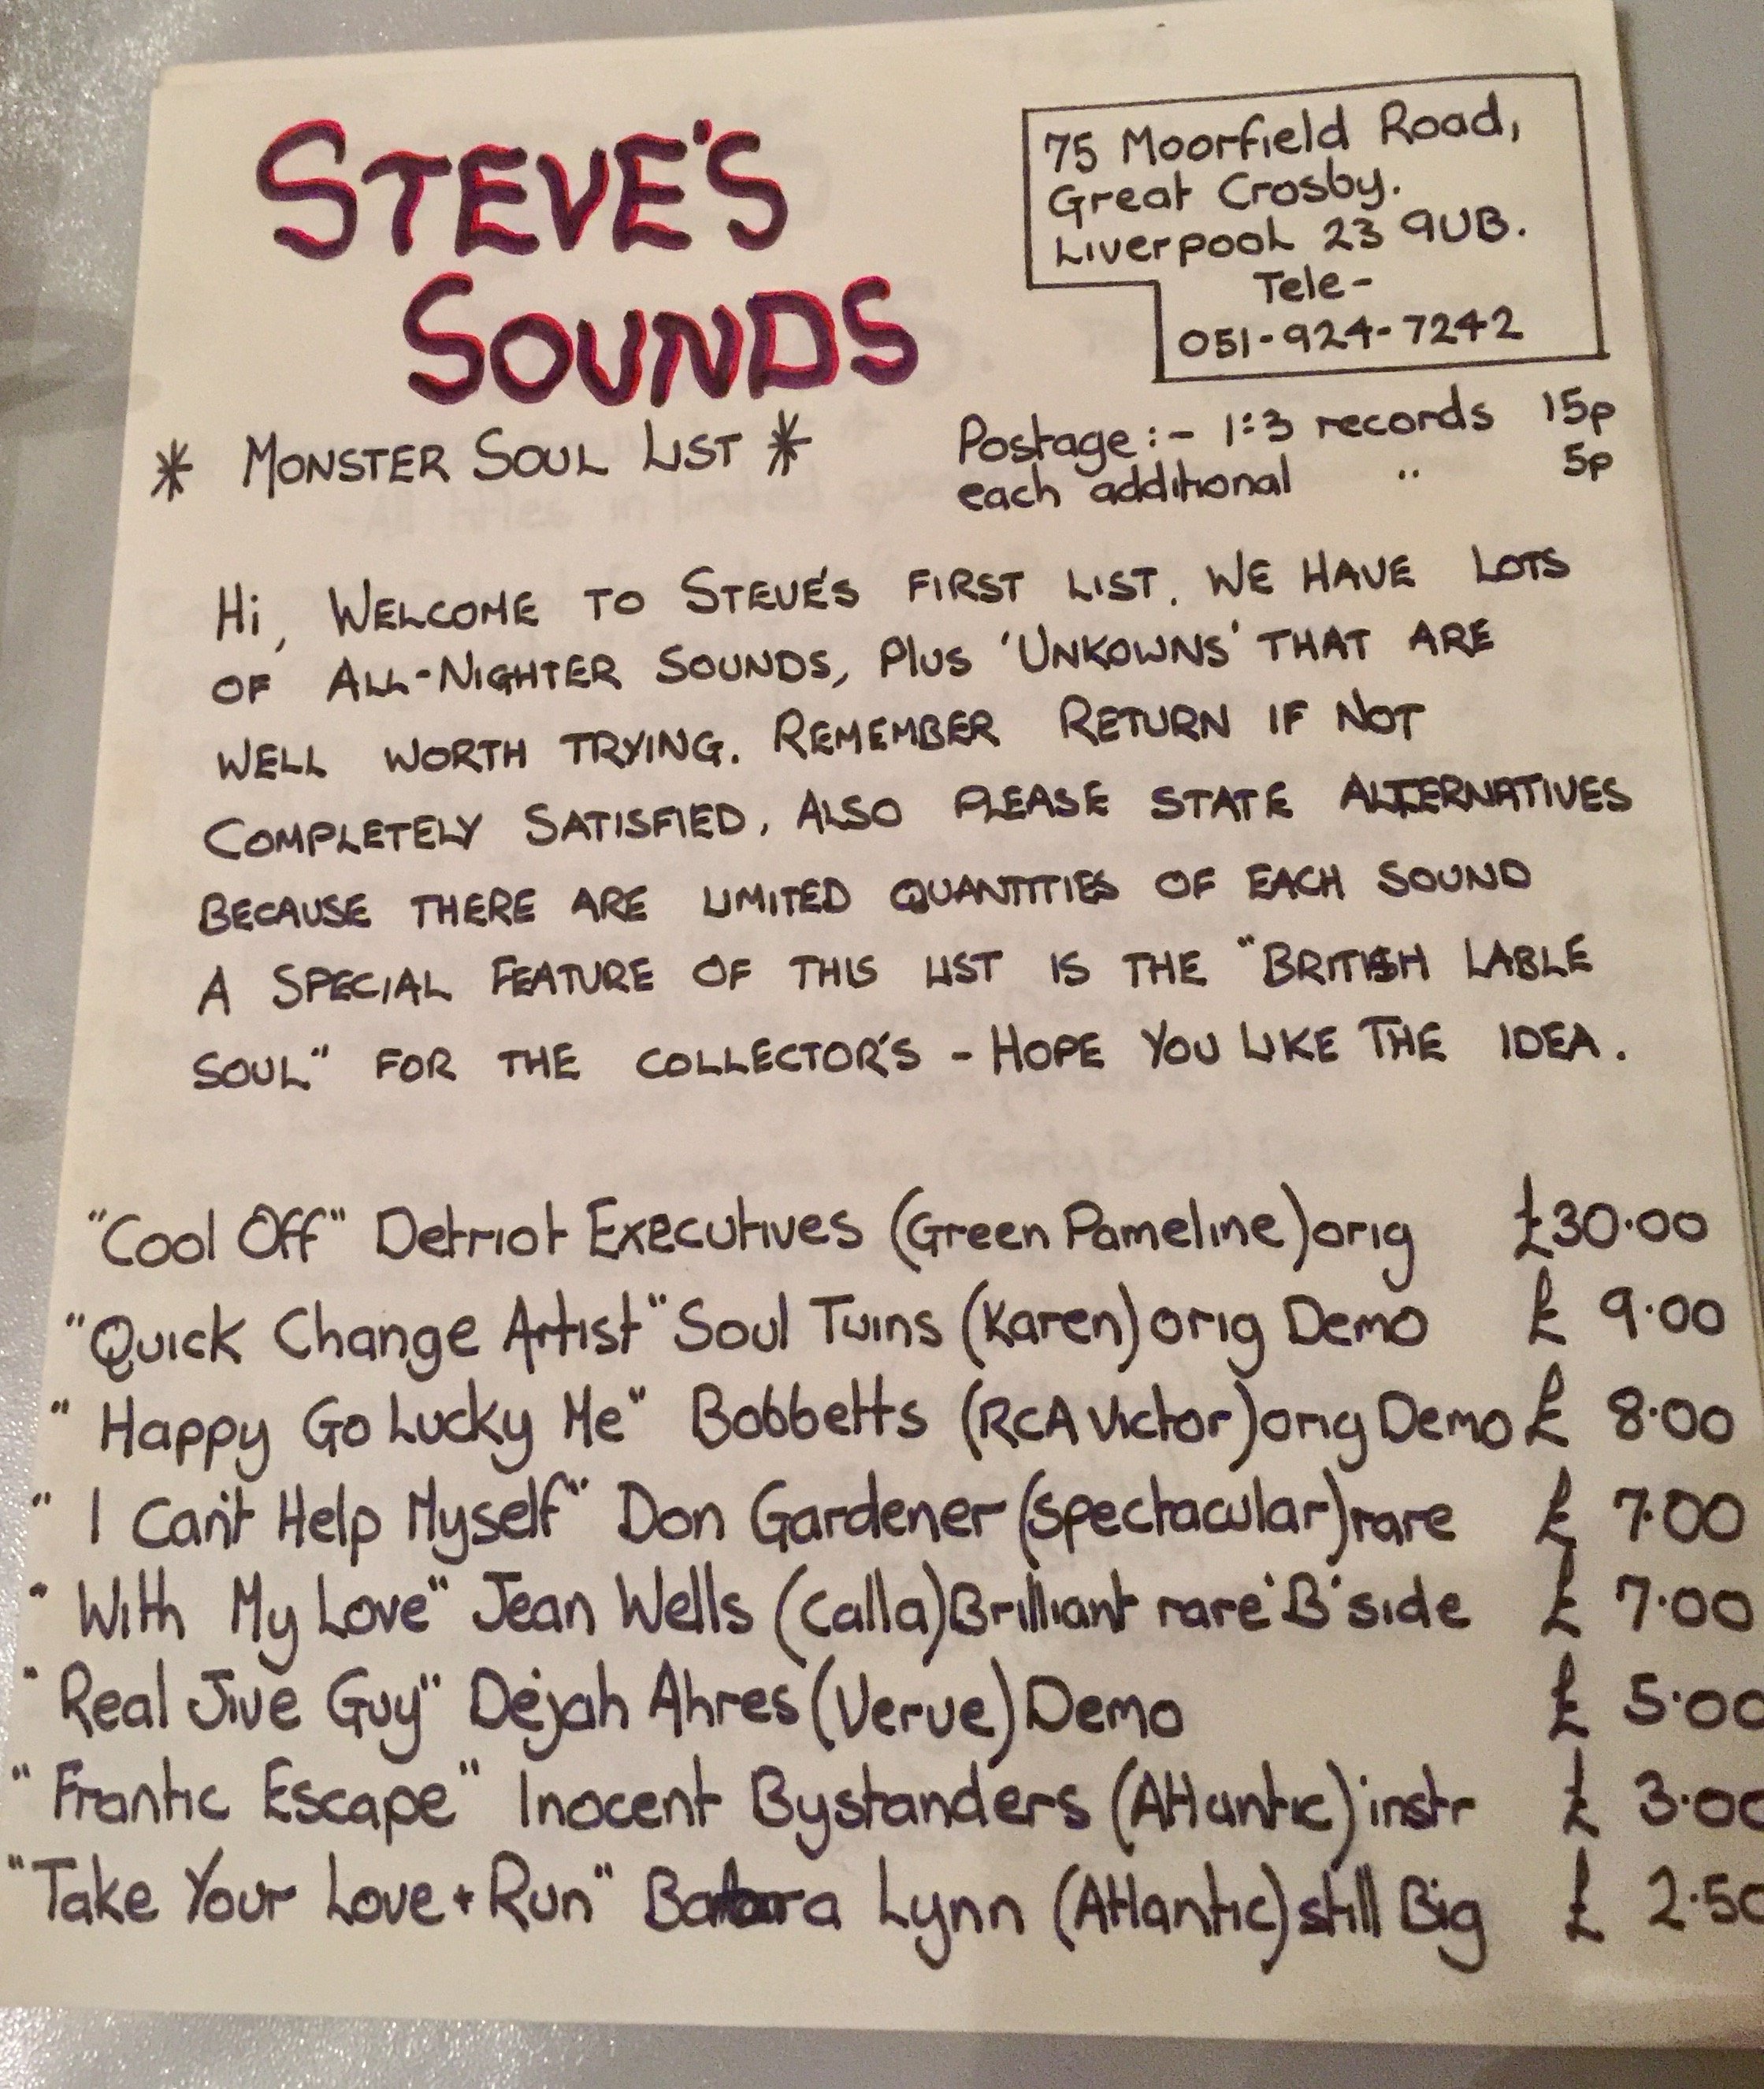 STEVE'S
SOUNDS
75 Moorfield Road,
Great Crosby.
Liverpool 23 9UB.
Tele-
051-924-7242
* MONSTER SOUL LIST *
Postage :- 1:3 records 15p
each additional " 5p
Hi, WELCOME TO STEVE'S FIRST LIST. WE HAVE LOTS
OF ALL-NIGHTER SOUNDS, PLUS 'UNKOWNS' THAT ARE
WELL WORTH TRYING. REMEMBER RETURN IF NOT
COMPLETELY SATISFIED. ALSO PLEASE STATE ALTERNATIVES
BECAUSE THERE ARE LIMITED QUANTITIES OF EACH SOUND
A SPECIAL FEATURE OF THIS LIST IS THE "BRITISH LABLE
SOUL" FOR THE COLLECTOR'S - HOPE YOU LIKE THE IDEA.
"Cool Off" Detriot Executives (Green Pameline) orig £30.00
"Quick Change Artist" Soul Twins (Karen) orig Demo £ 9.00
"Happy Go Lucky Me" Bobbetts (RCA Victor) orig Demo £ 8.00
"I Can't Help Myself" Don Gardener (Spectacular) rare £ 7.00
"With My Love" Jean Wells (Calla) Brilliant rare 'B' side £ 7.00
"Real Jive Guy" Dejah Ahres (Verve) Demo £ 5.00
"Frantic Escape" Inocent Bystanders (Atlantic) instr £ 3.00
"Take Your Love + Run" Barbara Lynn (Atlantic) still Big £ 2.50